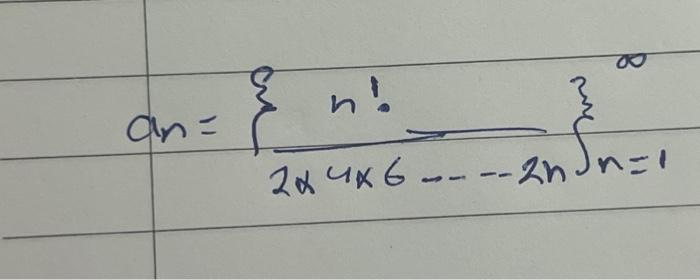 an = { n! / 2x4x6 ----- 2n } ∞ n=1